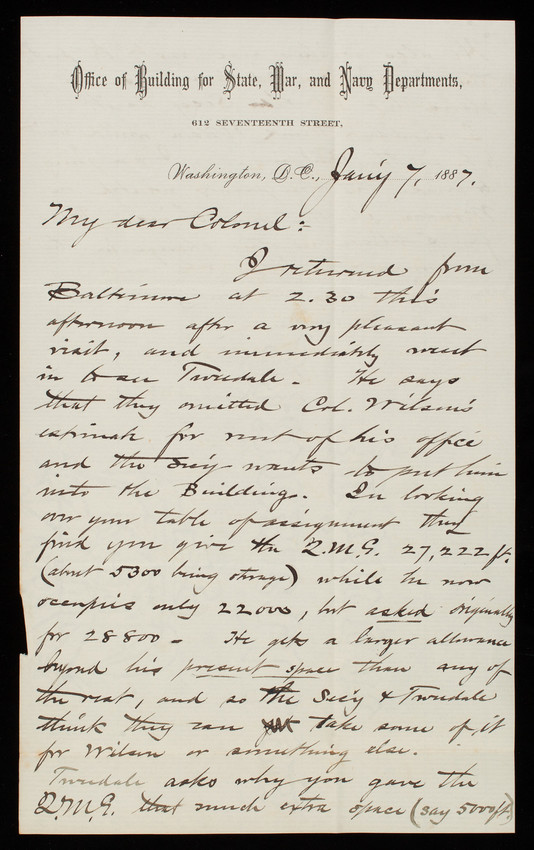 Office of Building for State, War, and Navy Departments,
612 SEVENTEENTH STREET,
Washington, D.C., Jan'y 7, 1887.
My dear Colonel:-
I returned from
Baltimore at 2.30 this
afternoon after a very pleasant
visit, and immediately went
in to see Tweedale - He says
that they omitted Col. Wilson's
estimate for rent of his office
and the Sec'y wants to put him
into the Building. In looking
over your table of assignment they
find you give the Q.M.G. 27,222 ft.
(about 5300 being storage) while he now
occupies only 22000, but asked originally
for 28800 - He gets a larger allowance
beyond his present space than any of
the rest, and so the Sec'y & Tweedale
think they can take some of it
for Wilson or something else.
Tweedale asks why you gave the
Q.M.G. that much extra space (say 5000 ft.)